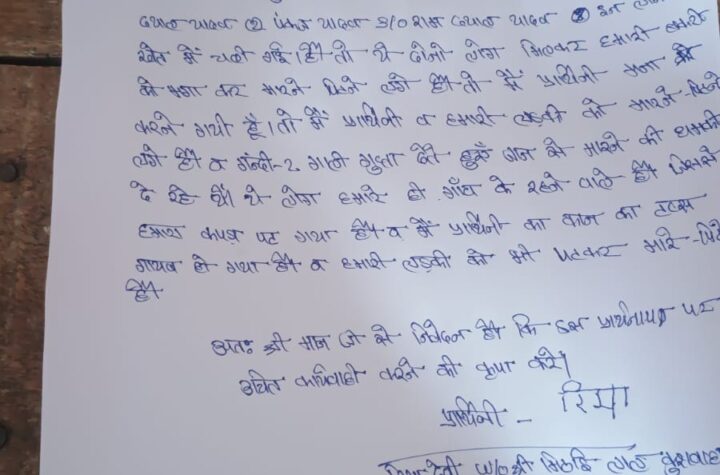 दयाल यादव ② पंकज यादव S/O राम दयाल यादव ③ इन लोग
खेत में चली गई। हैं तो ये दोनो लोग मिलकर हमारी लड़की
को भगा कर मारने पिटने लगे हैं तो मैं प्रार्थिनी मना
करने गयी हैं। तो मैं प्रार्थिनी व हमारी लड़की को मारने-पिटने
लगे हैं व गन्दी-२ गाली गुप्ता देते हुऐ जान से मारने की धमकी
दे रहे थे। ये लोग हमारे ही गाँव के रहने वाले हैं। जिससे
हमारा कपड़ा फट गया हैं व मैं प्रार्थिनी का कान का टप्स
गायब हो गया हैं व हमारी लड़की को भी पटकर मारे-पिटे
हैं।
अतः श्री मान जी से निवेदन हैं कि इस प्रार्थनापत्र पर
उचित कार्यवाही करने की कृपा करें।
प्रार्थिनी - रिया
देवी W/O श्री लाल कुशवाहा